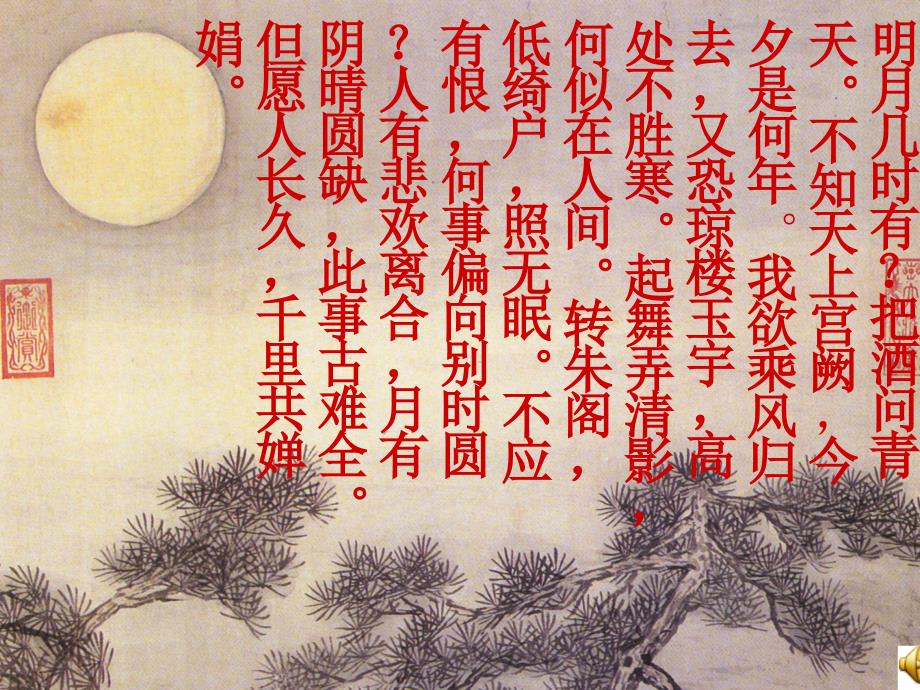 明月几时有？把酒问青
天。不知天上宫阙，今
夕是何年。我欲乘风归
去，又恐琼楼玉宇，高
处不胜寒。起舞弄清影，
何似在人间。转朱阁，
低绮户，照无眠。不应
有恨，何事偏向别时圆
？人有悲欢离合，月有
阴晴圆缺，此事古难全。
但愿人长久，千里共婵
娟。